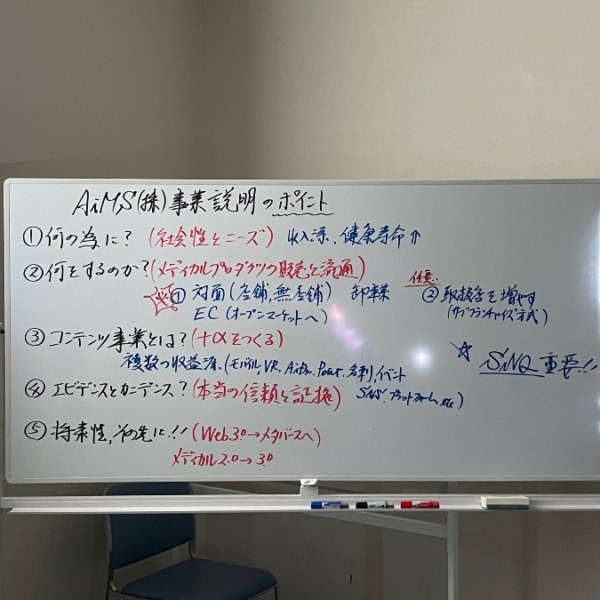 AiMS(株)事業説明のポイント
①何の為に?(社会性とニーズ) 収入源、健康寿命↑
②何をするのか?(メディカルプロダクツの販売と流通)
① 対面(店舗,無店舗) 卸業 任意 ② 取扱店を増やす
EC(オープンマーケットへ) (サブフランチャイズ方式)
③コンテンツ事業とは?(+αをつくる)
複数の収益源(モバイル,VR, 名刺,イベント
SNS,プラットフォーム,etc)
☆ SiNQ 重要!!
④エビデンスとカニデンス?(本当の信頼と証拠)
⑤将来性,その先に!!(Web3.0→メタバースへ)
メディカル2.0→3.0